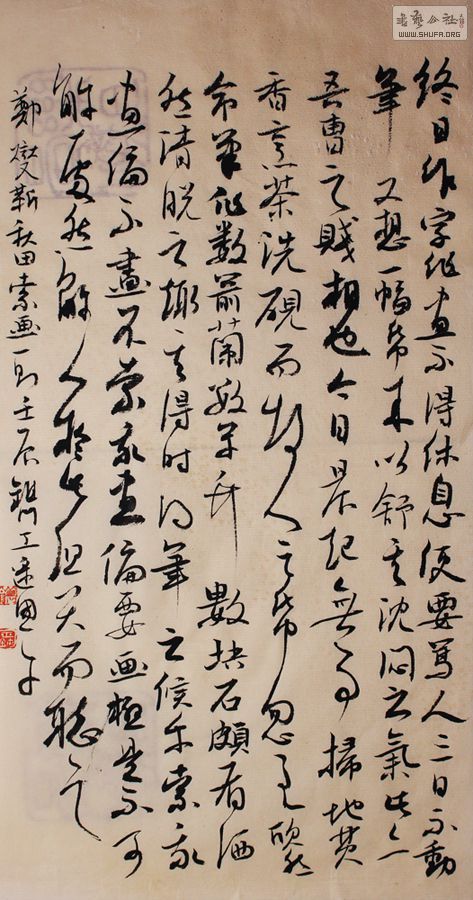 書藝公社
WWW.SHUFA.ORG
終日作字作畫不得休息便要罵人三日不動
筆又想一幅帋來以舒其沈悶之氣此亦
吾曹之賤相也今日晨起無事掃地焚
香烹茶洗硯而故人之帋忽至欣然
命筆作數箭蘭數竿竹數塊石頗有洒
然清脱之趣其得時得筆之候乎索我
畫偏不畫不索我畫偏要画極是不可
解處然解人於此但笑而聽之
鄭燮靳秋田索画一則壬辰